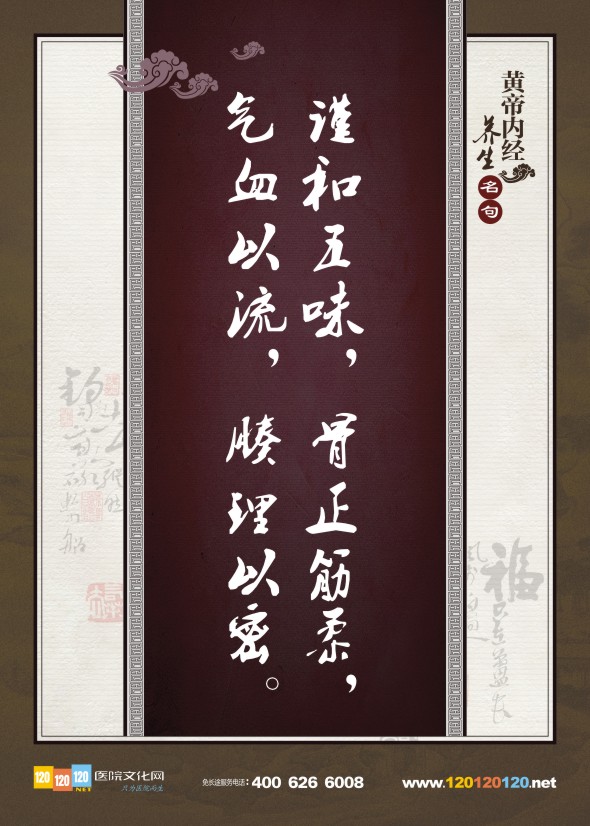 黄帝内经
养生
名句
谨和五味，骨正筋柔，
气血以流，腠理以密。
福
120 120 120 .NET
医院文化网
只为医院而生
免长途服务电话：400 626 6008
www.120120120.net